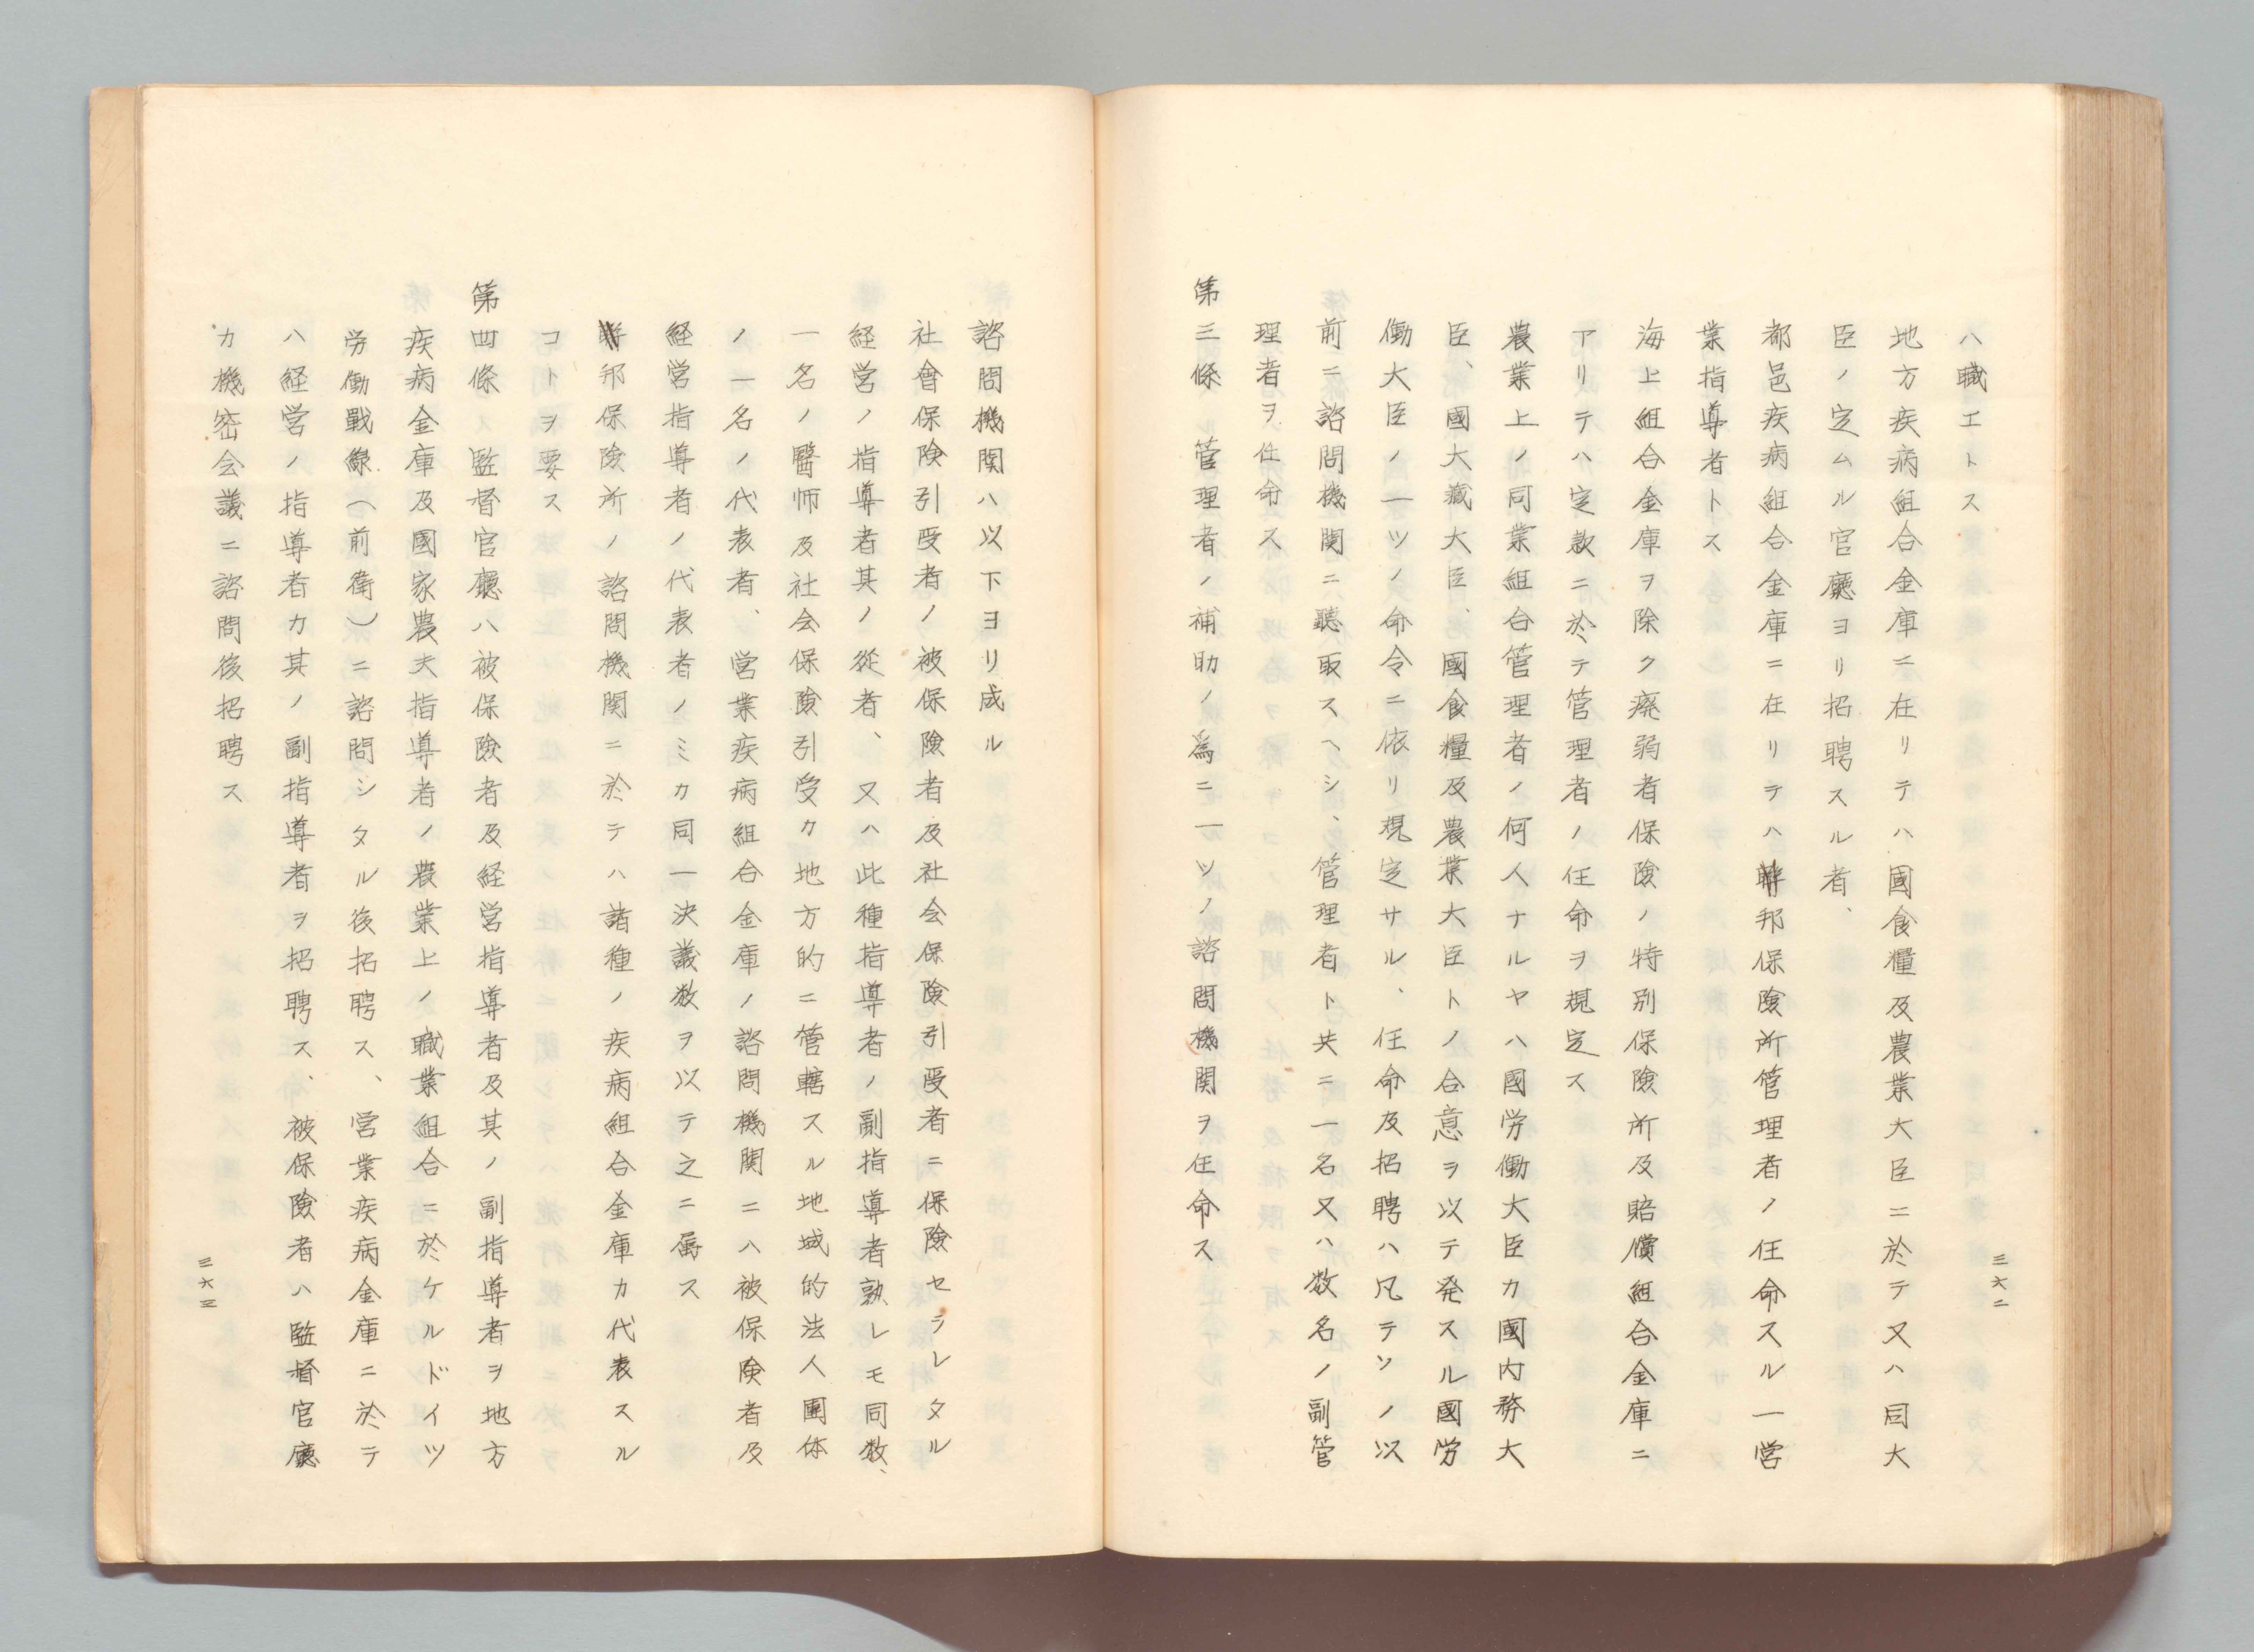 ハ職エトス
地方疾病組合金庫ニ在リテハ國食糧及農業大臣ニ於テ又ハ同大
臣ノ定ムル官廳ヨリ招聘スル者、
都邑疾病組合金庫ニ在リテハ聯邦保險所管理者ノ任命スル一営
業指導者トス
海上組合金庫ヲ除ク廃弱者保險ノ特別保險所及賠償組合金庫ニ
アリテハ定款ニ於テ管理者ノ任命ヲ規定ス
農業上ノ同業組合管理者ノ何人ナルヤハ國労働大臣カ國内務大
臣、國大藏大臣、國食糧及農業大臣トノ合意ヲ以テ発スル國労
働大臣ノ一ツノ命令ニ依リ規定サル、任命及招聘ハ凡テソノ以
前ニ諮問機関ニ聽取スヘシ、管理者ト共ニ一名又ハ数名ノ副管
理者ヲ任命ス
第三條　管理者ノ補助ノ爲ニ一ツノ諮問機関ヲ任命ス
三六二
諮問機関ハ以下ヨリ成ル
社會保険引受者ノ被保險者及社会保險引受者ニ保險セラレタル
経営ノ指導者其ノ從者、又ハ此種指導者ノ副指導者熟レモ同数、
一名ノ醫師及社会保險引受カ地方的ニ管轄スル地域的法人團体
ノ一名ノ代表者、営業疾病組合金庫ノ諮問機関ニハ被保険者及
経営指導者ノ代表者ノミカ同一決議数ヲ以テ之ニ属ス
聯邦保險所ノ諮問機関ニ於テハ諸種ノ疾病組合金庫カ代表スル
コトヲ要ス
第四條　監督官廳ハ被保險者及経営指導者及其ノ副指導者ヲ地方
疾病金庫及國家農夫指導者ノ農業上ノ職業組合ニ於ケルドイツ
労働戰線（前衛）ニ諮問シタル後招聘ス、営業疾病金庫ニ於テ
ハ経営ノ指導者カ其ノ副指導者ヲ招聘ス、被保險者ハ監督官廳
カ機密会議ニ諮問後招聘ス
三六三